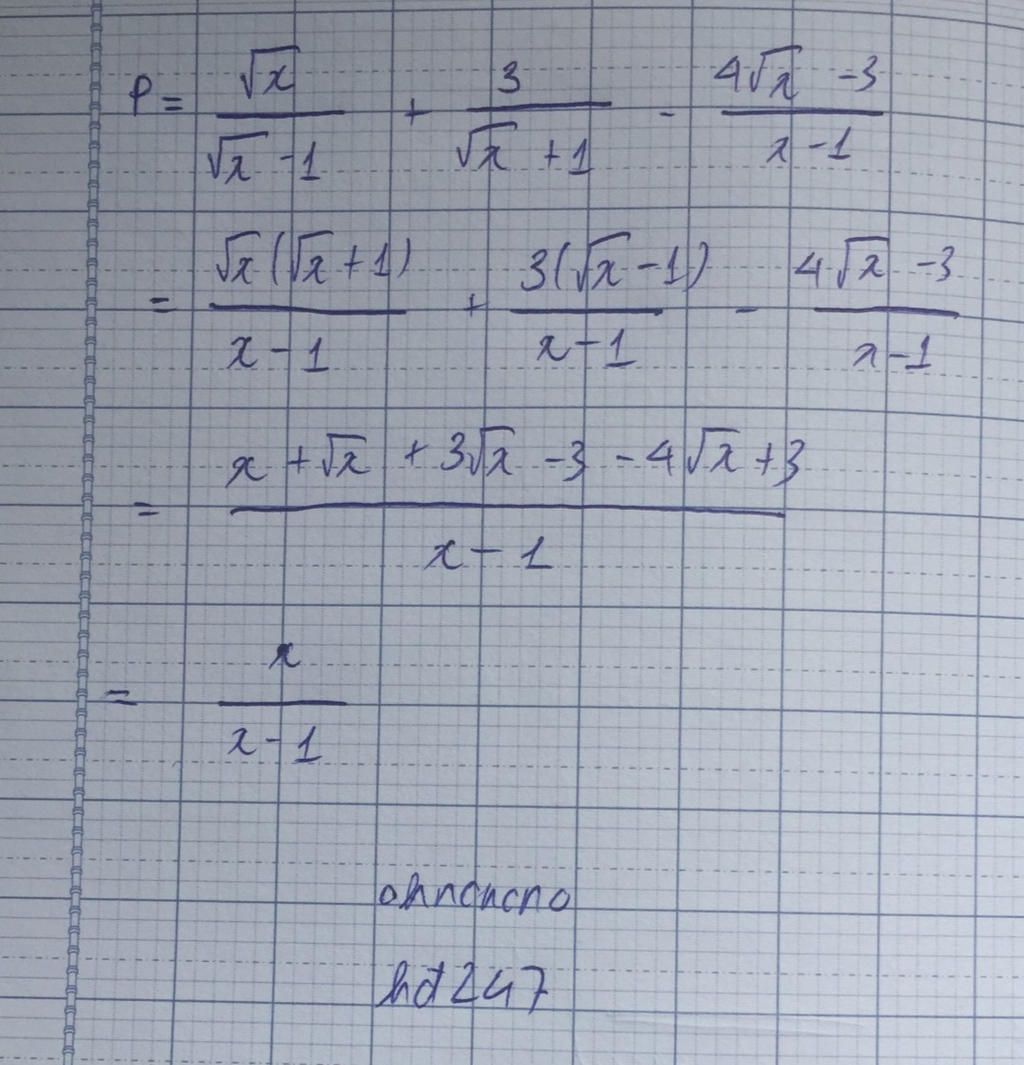 P = \frac{\sqrt{x}}{\sqrt{x} - 1} + \frac{3}{\sqrt{x} + 1} - \frac{4\sqrt{x} - 3}{x - 1}
= \frac{\sqrt{x}(\sqrt{x} + 1)}{x - 1} + \frac{3(\sqrt{x} - 1)}{x - 1} - \frac{4\sqrt{x} - 3}{x - 1}
= \frac{x + \sqrt{x} + 3\sqrt{x} - 3 - 4\sqrt{x} + 3}{x - 1}
= \frac{x}{x - 1}
hđ247